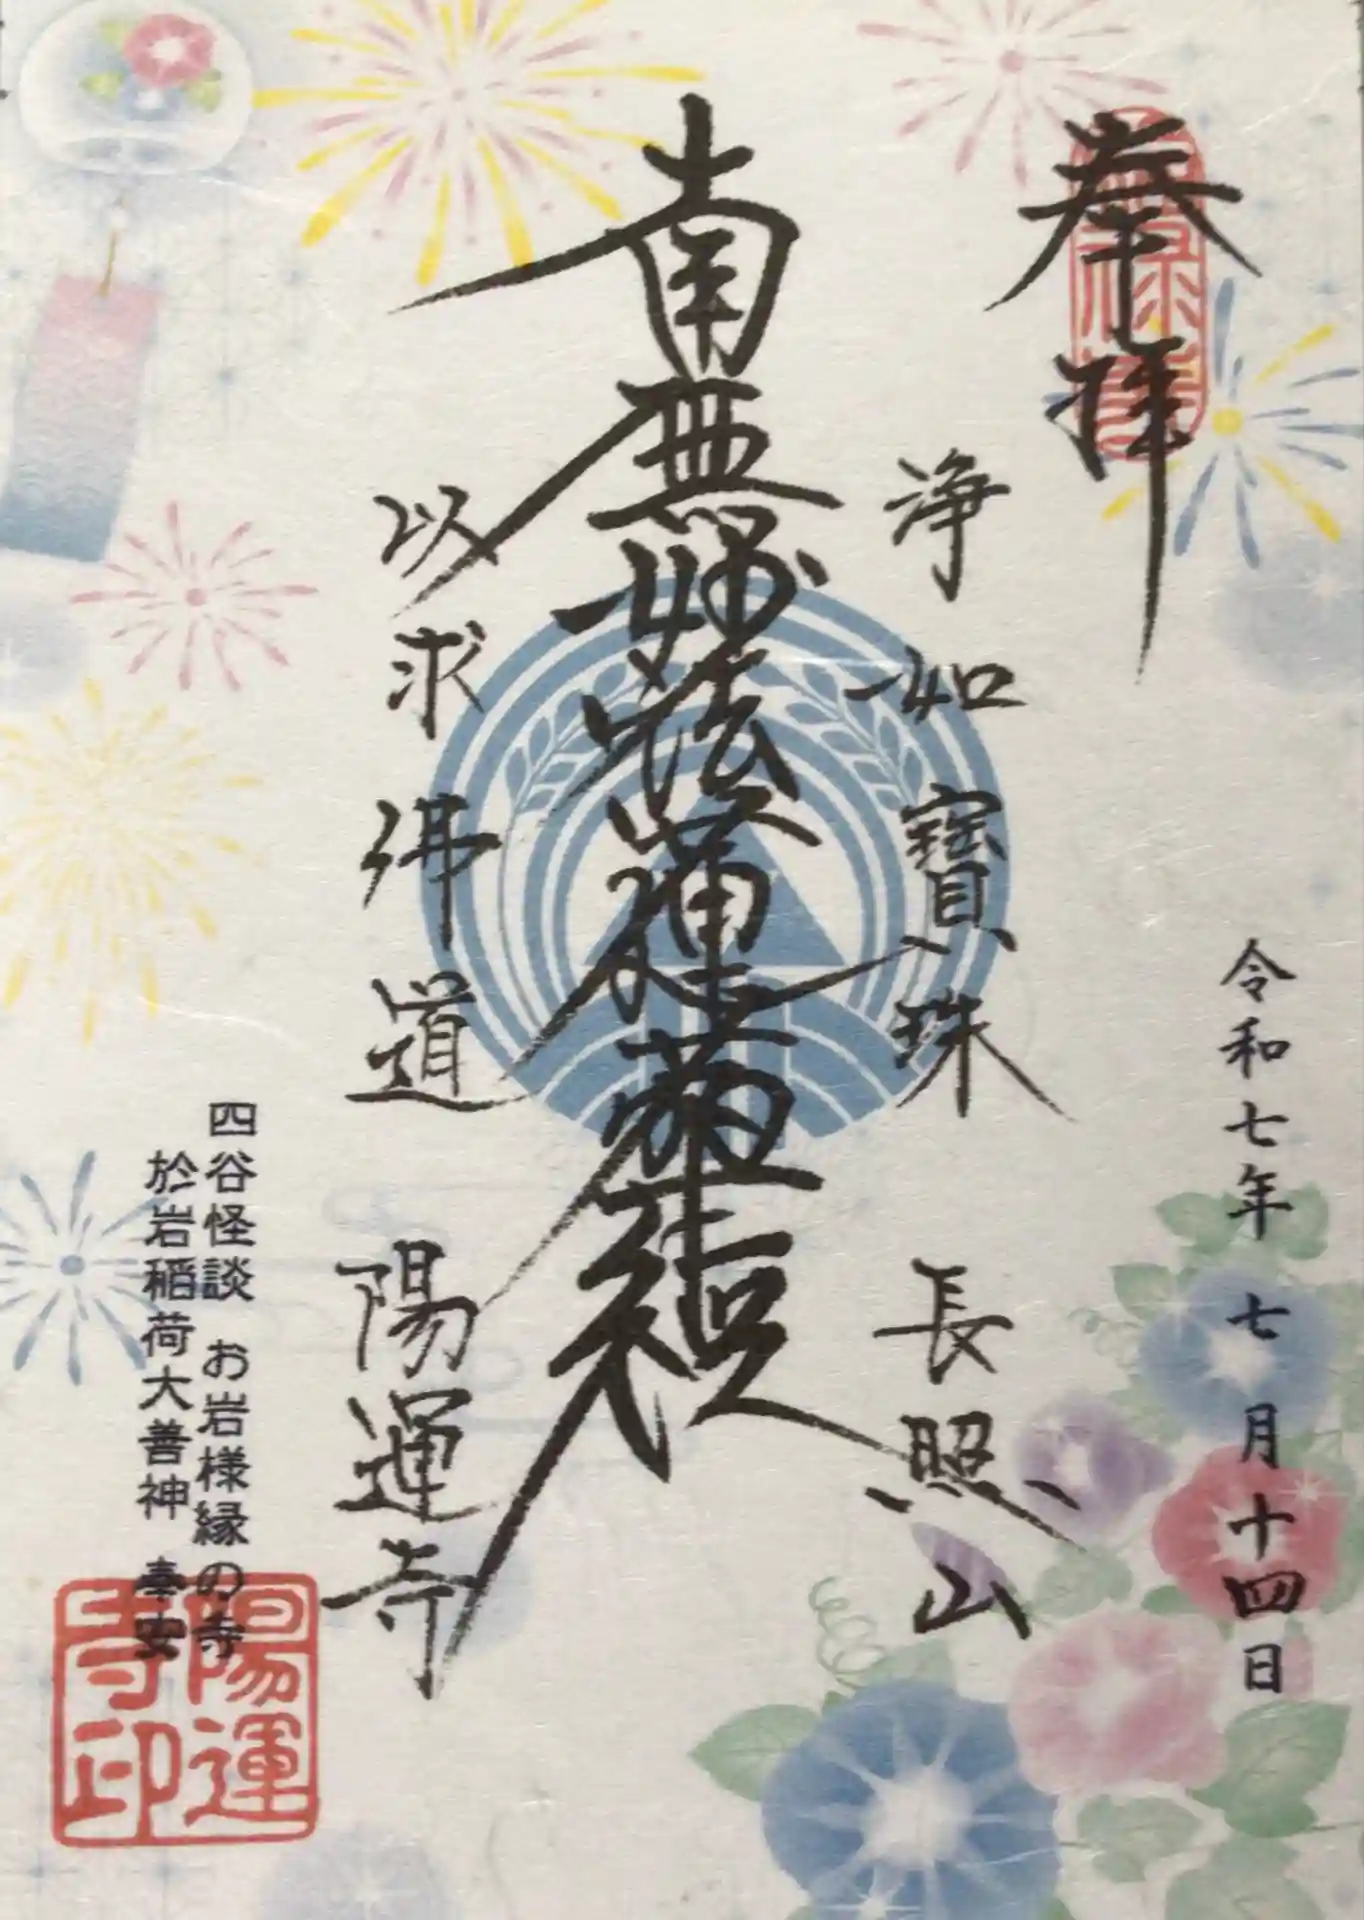 奉拝
令和七年 七月十四日
浄如寶珠 長照山
南無妙法蓮華経
以求佛道 陽運寺
四谷怪談 お岩様縁の寺
於岩稲荷大善神 奉安
陽運寺印